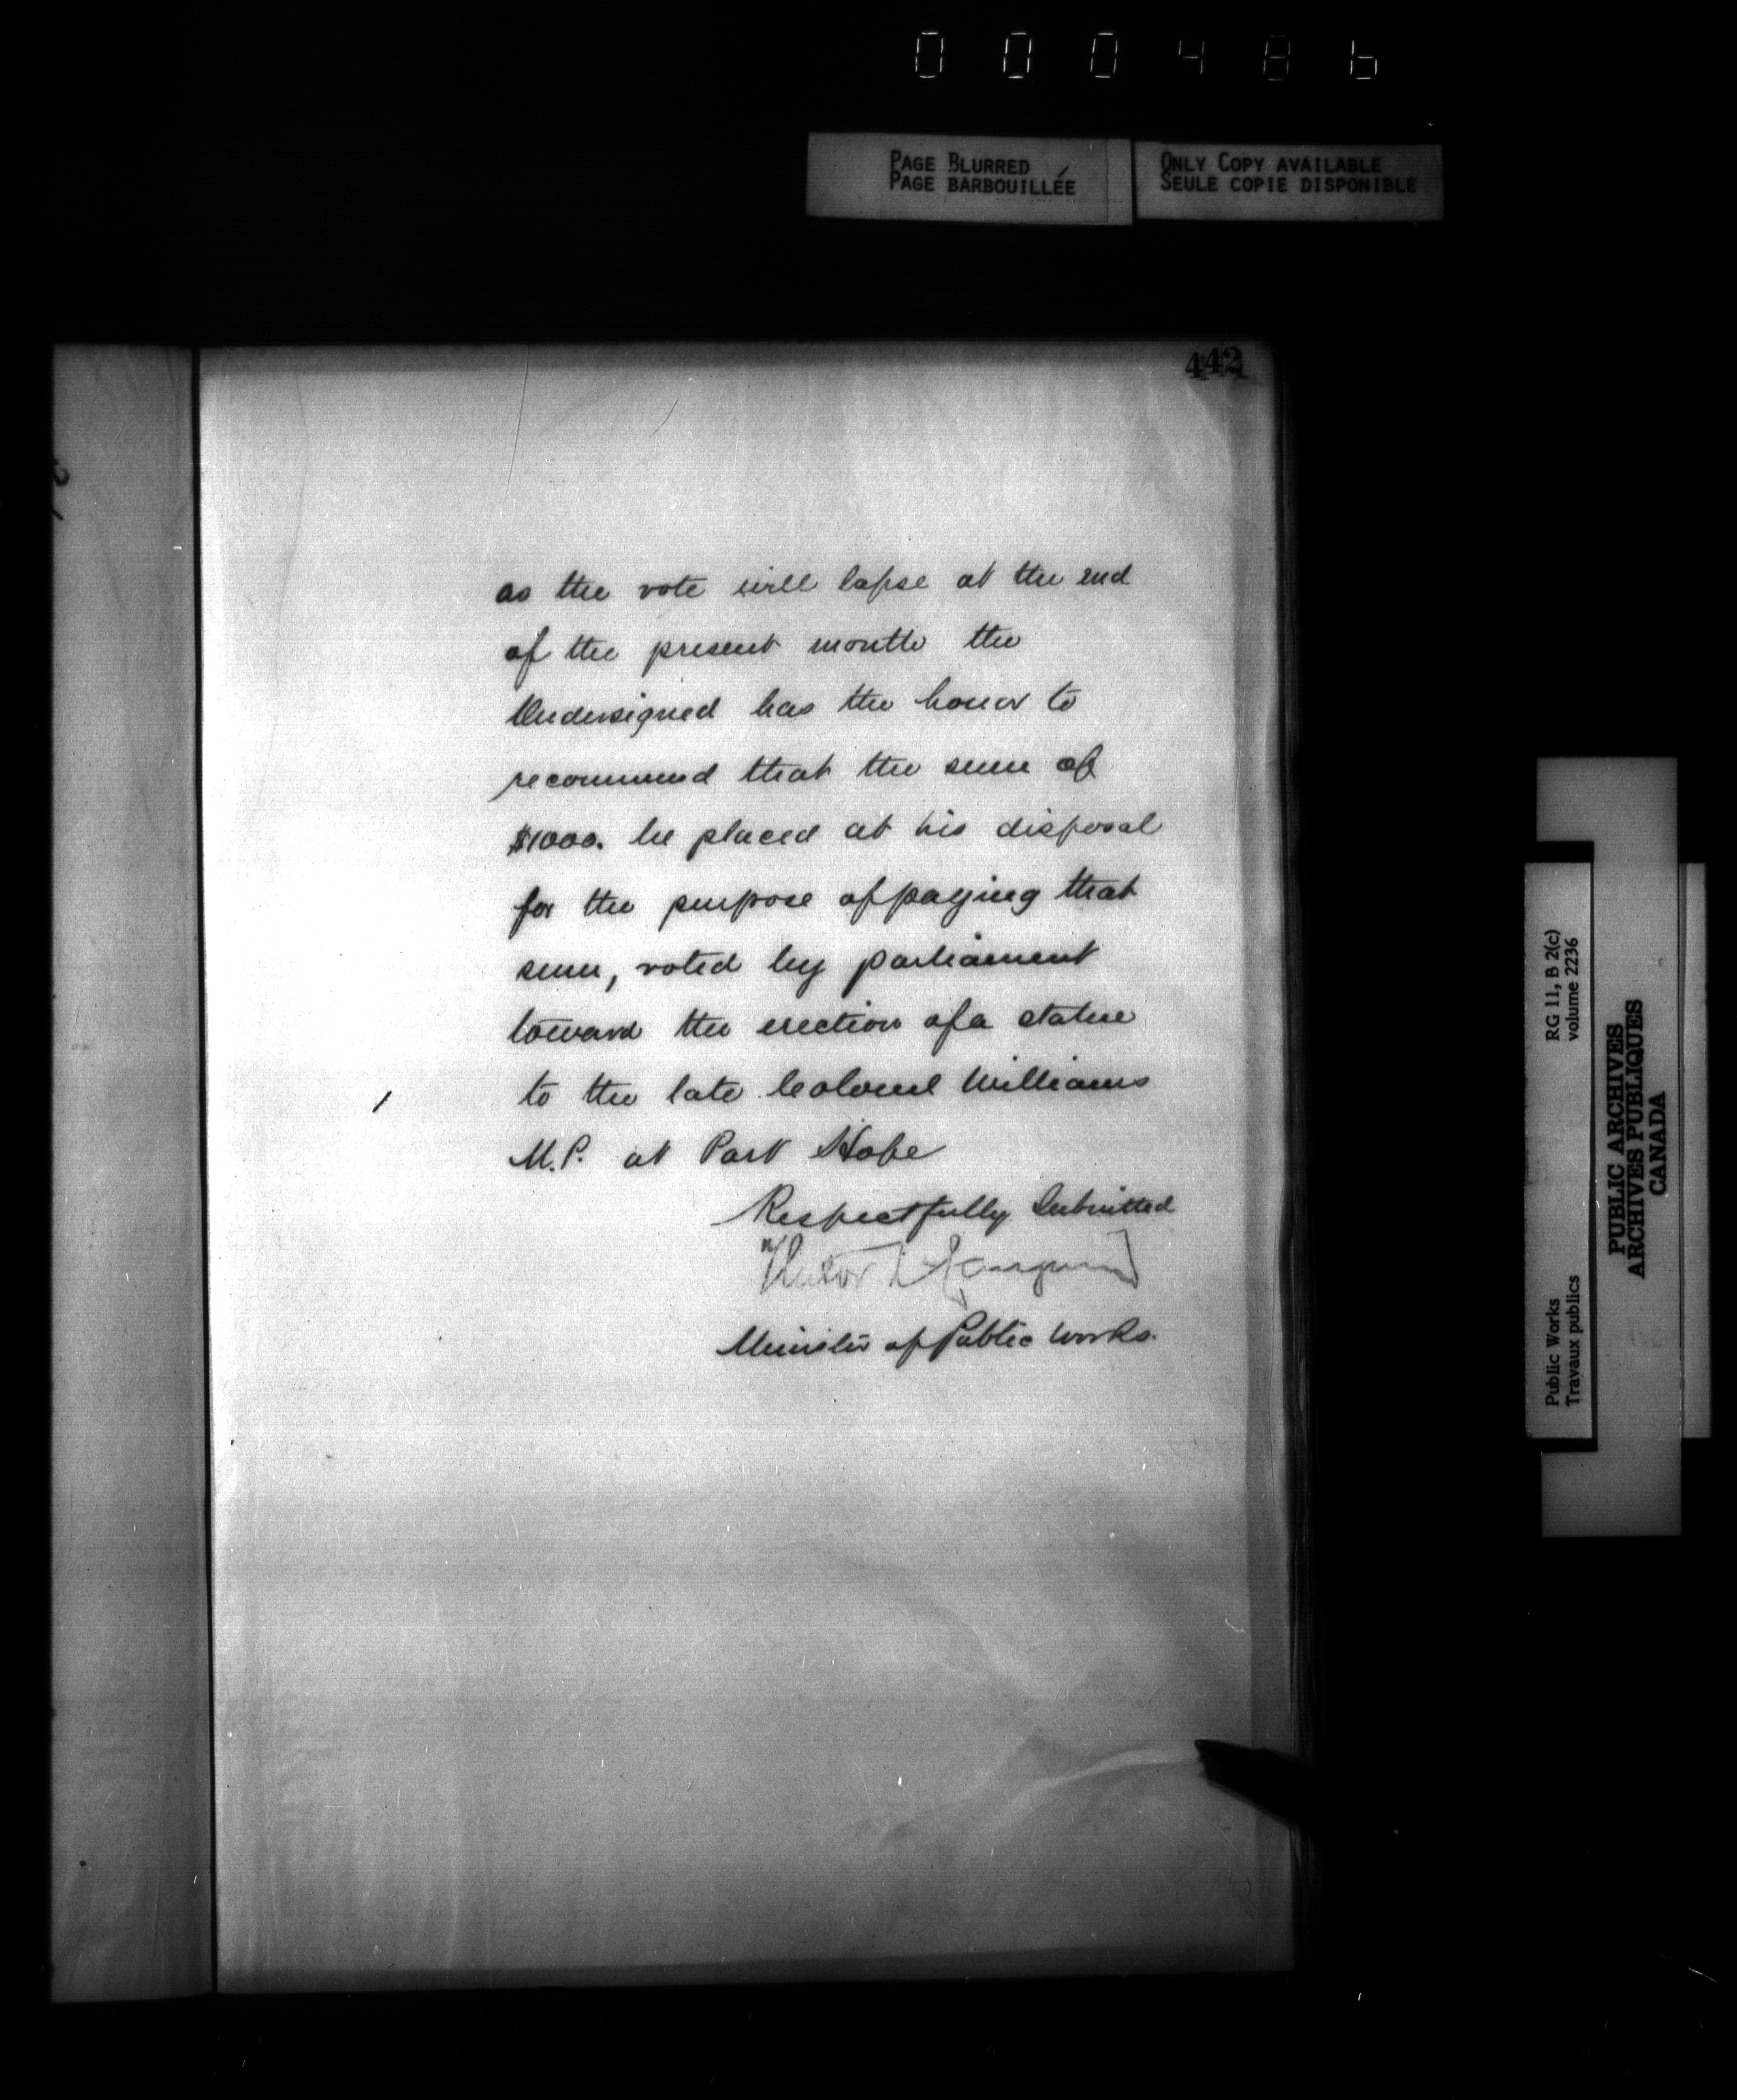 000486
PAGE BLURRED
PAGE BARBOUILLÉE
ONLY COPY AVAILABLE
SEULE COPIE DISPONIBLE
442
as the vote will lapse at the end
of the present month the
Undersigned has the honor to
recommend that the sum of
$1000. be placed at his disposal
for the purpose of paying that
sum, voted by parliament
toward the erection of a statue
to the late Colonel Williams
M.P. at Port Hope
Respectfully Submitted
Minister of Public Works.
RG 11, B 2(c)
volume 2236
Public Works
Travaux publics
PUBLIC ARCHIVES
ARCHIVES PUBLIQUES
CANADA